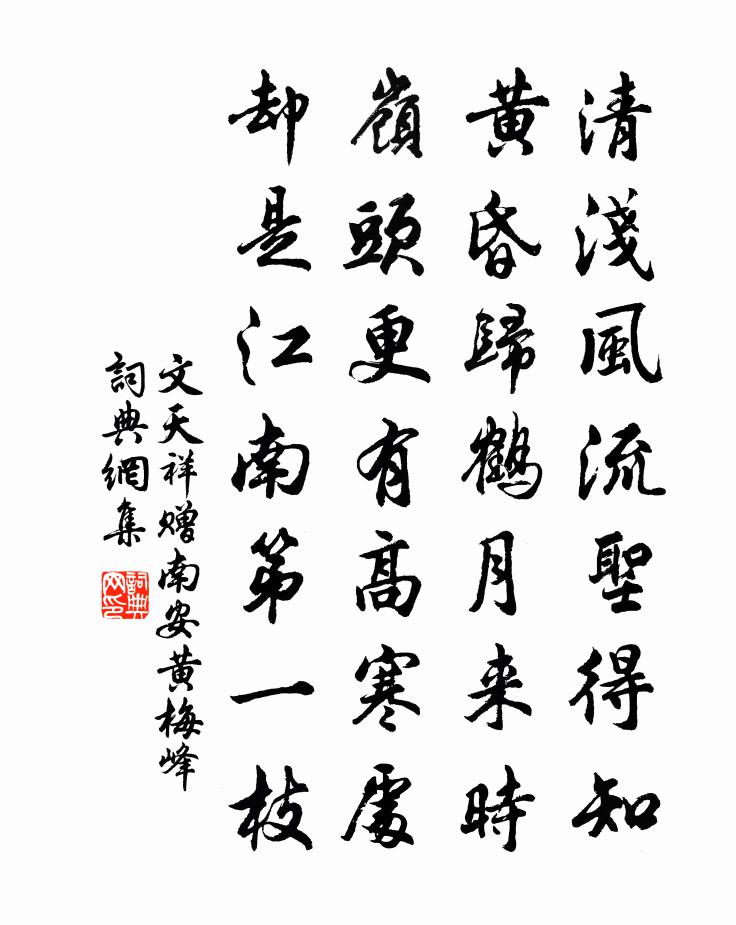 清淺風流聖得知
黃昏歸鶴月来時
嶺頭更有高寒處
却是江南第一枝
文天祥贈南安黃梅峰
詞典網集
詞典网印